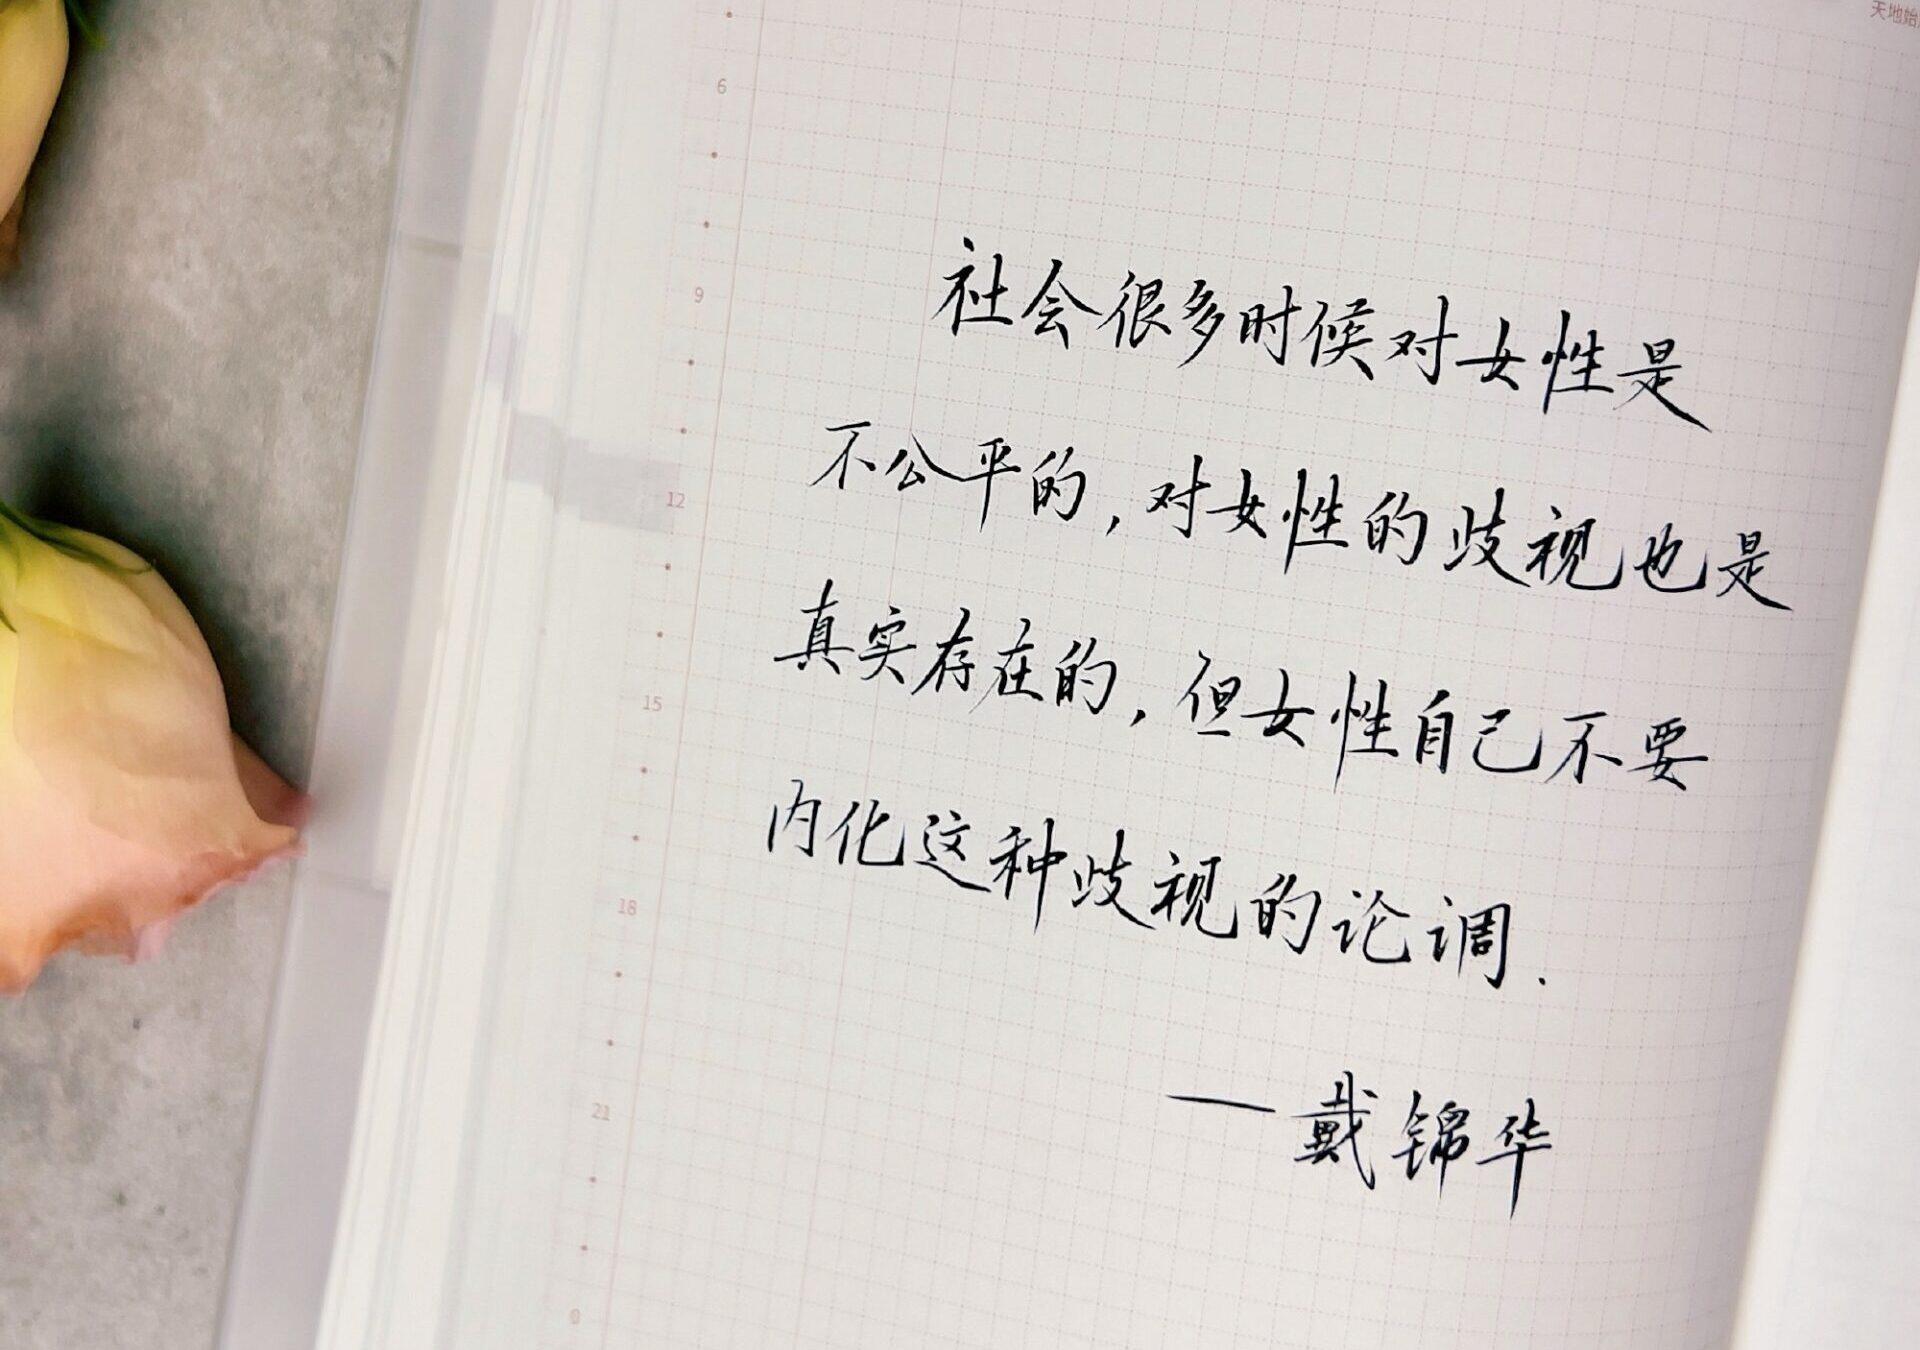 天地始
6
9
12
15
18
21
0
社会很多时候对女性是
不公平的,对女性的歧视也是
真实存在的,但女性自己不要
内化这种歧视的论调.
—戴锦华